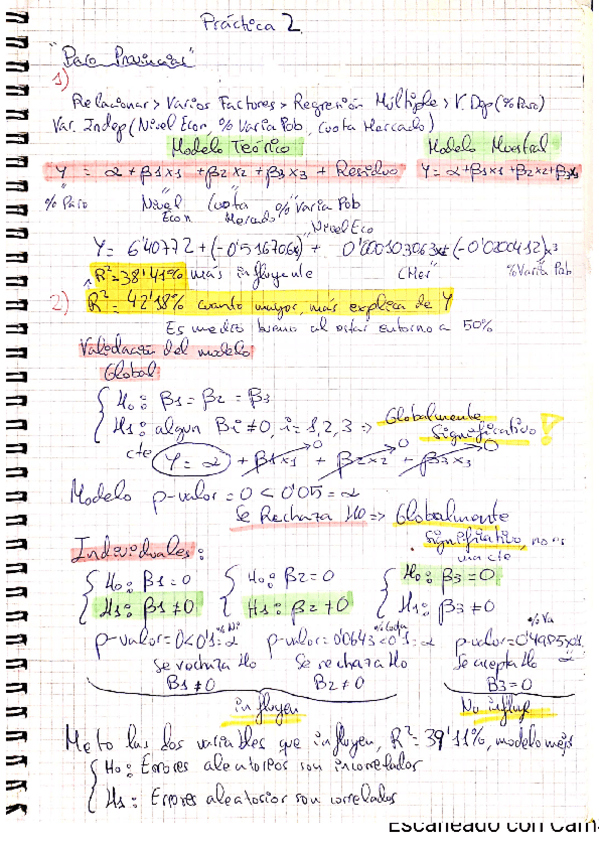 Práctica 2
"Paro Provincias"
1)
Relacionar > Varios Factores > Regresión Múltiple > V. Dep (% Paro)
Var. Indep (Nivel Econ, % Varia Pob, Cuota Mercado)
Modelo Teórico Modelo Muestral
Y = α + β1x1 + β2x2 + β3x3 + Residuo Y = α + β1x1 + β2x2 + β3x3
% Paro Nivel Econ Cuota Mercado % Varia Pob
Nivel Eco
Y = 6'40772 + (-0'516706x) + 0'000103063x + (-0'0200412)x3
R²=38'41% más influyente CMer % Varia Pob
2) R² = 42'18% cuanto mayor, más explica de Y
Es medio bueno al estar entorno a 50%
Validación del modelo
Global
H0: β1 = β2 = β3
H1: algun Bi ≠ 0, i = 1, 2, 3 => Globalmente Significativo !
cte Y = α + β1x1 + β2x2 + β3x3
0 0 0
Modelo p-valor = 0 < 0'05 = α
Se Rechaza H0 => Globalmente
Significativo, no es
una cte
Individuales:
H0: β1 = 0 H0: β2 = 0 H0: β3 = 0
H1: β1 ≠ 0 H1: β2 ≠ 0 H1: β3 ≠ 0
% Ni % Cuota % Va
p-valor = 0 < 0'1 = α p-valor = 0'0643 < 0'1 = α p-valor = 0'4985 > 0'1 = α
Se rechaza H0 Se rechaza H0 Se acepta H0
B1 ≠ 0 B2 ≠ 0 B3 = 0
influyen No influye
Meto las dos variables que influyen, R² = 39'11%, modelo mejor
H0: Errores aleatorios son incorrelados
H1: Errores aleatorios son correlados
Escaneado con Cam